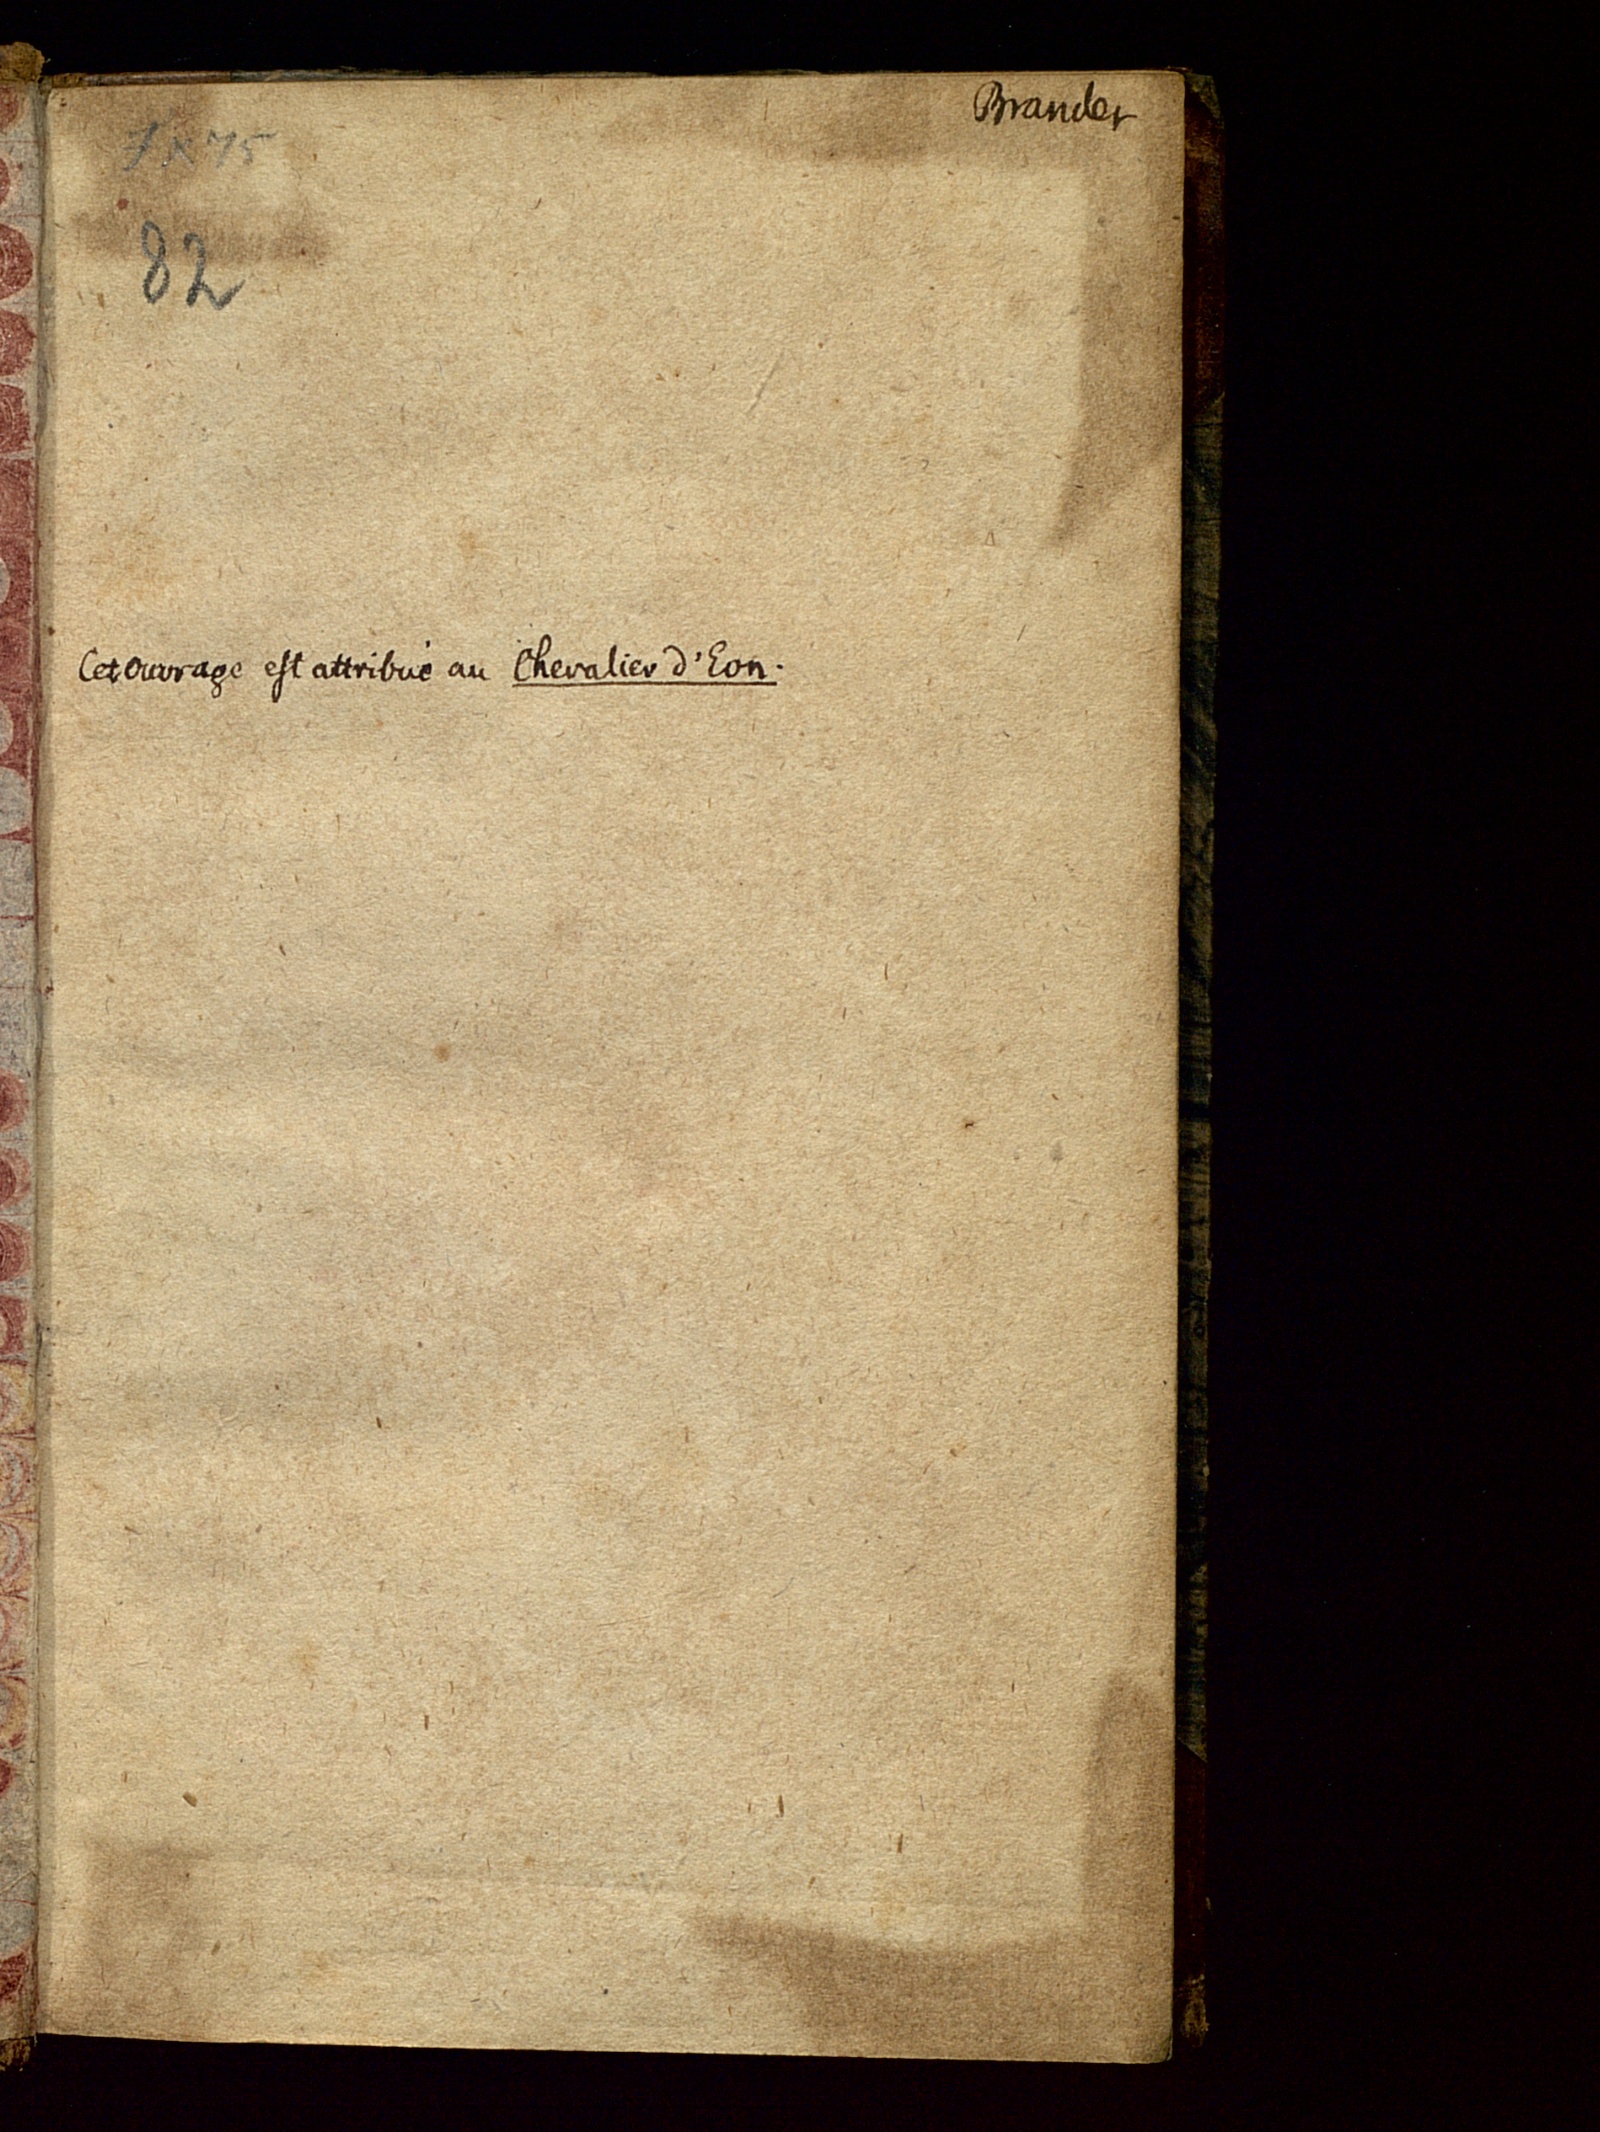 Brander
82
Cet ouvrage est attribué au Chevalier d'Eon.